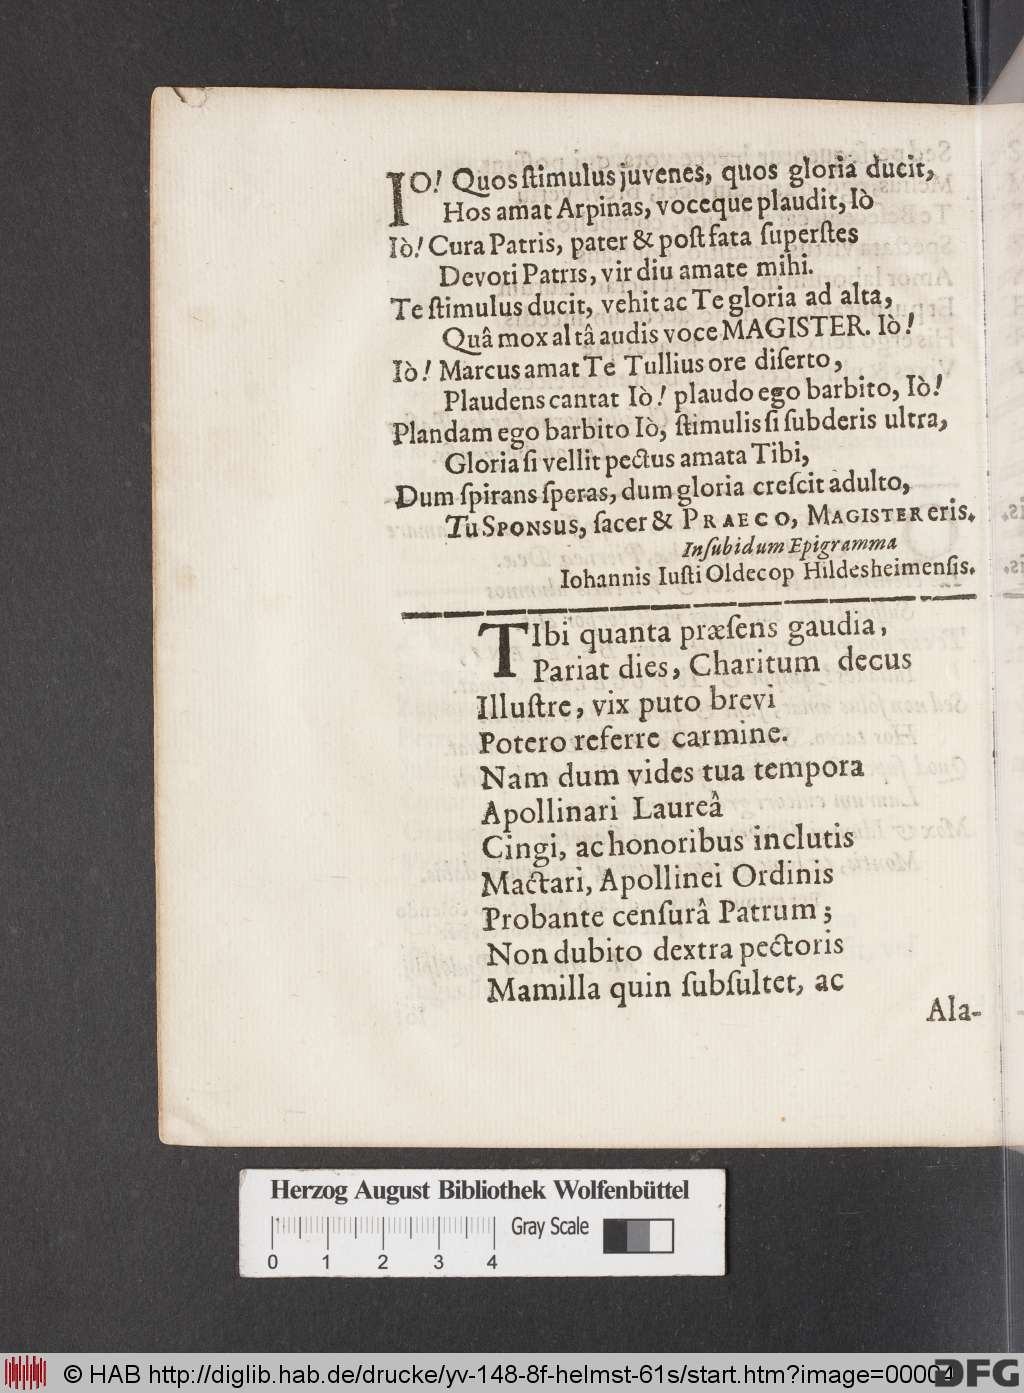 IO! Quos ſtimulus juvenes, quos gloria ducit,
Hos amat Arpinas, voceque plaudit, Iò
Iò! Cura Patris, pater & poſt fata ſuperſtes
Devoti Patris, vir diu amate mihi.
Te ſtimulus ducit, vehit ac Te gloria ad alta,
Quâ mox altâ audis voce MAGISTER. Iò!
Iò! Marcus amat Te Tullius ore diſerto,
Plaudens cantat Iò! plaudo ego barbito, Iò!
Plandam ego barbito Iò, ſtimulis ſi ſubderis ultra,
Gloria ſi vellit pectus amata Tibi,
Dum ſpirans ſperas, dum gloria creſcit adulto,
Tu SPONSUS, ſacer & PRAECO, MAGISTER eris.
Inſubidum Epigramma
Iohannis Iuſti Oldecop Hildesheimenſis.
TIbi quanta præſens gaudia,
Pariat dies, Charitum decus
Illuſtre, vix puto brevi
Potero referre carmine.
Nam dum vides tua tempora
Apollinari Laureâ
Cingi, ac honoribus inclutis
Mactari, Apollinei Ordinis
Probante cenſurâ Patrum;
Non dubito dextra pectoris
Mamilla quin ſubſultet, ac
Ala-
Herzog August Bibliothek Wolfenbüttel
Gray Scale
0 1 2 3 4
© HAB http://diglib.hab.de/drucke/yv-148-8f-helmst-61s/start.htm?image=00004
DFG